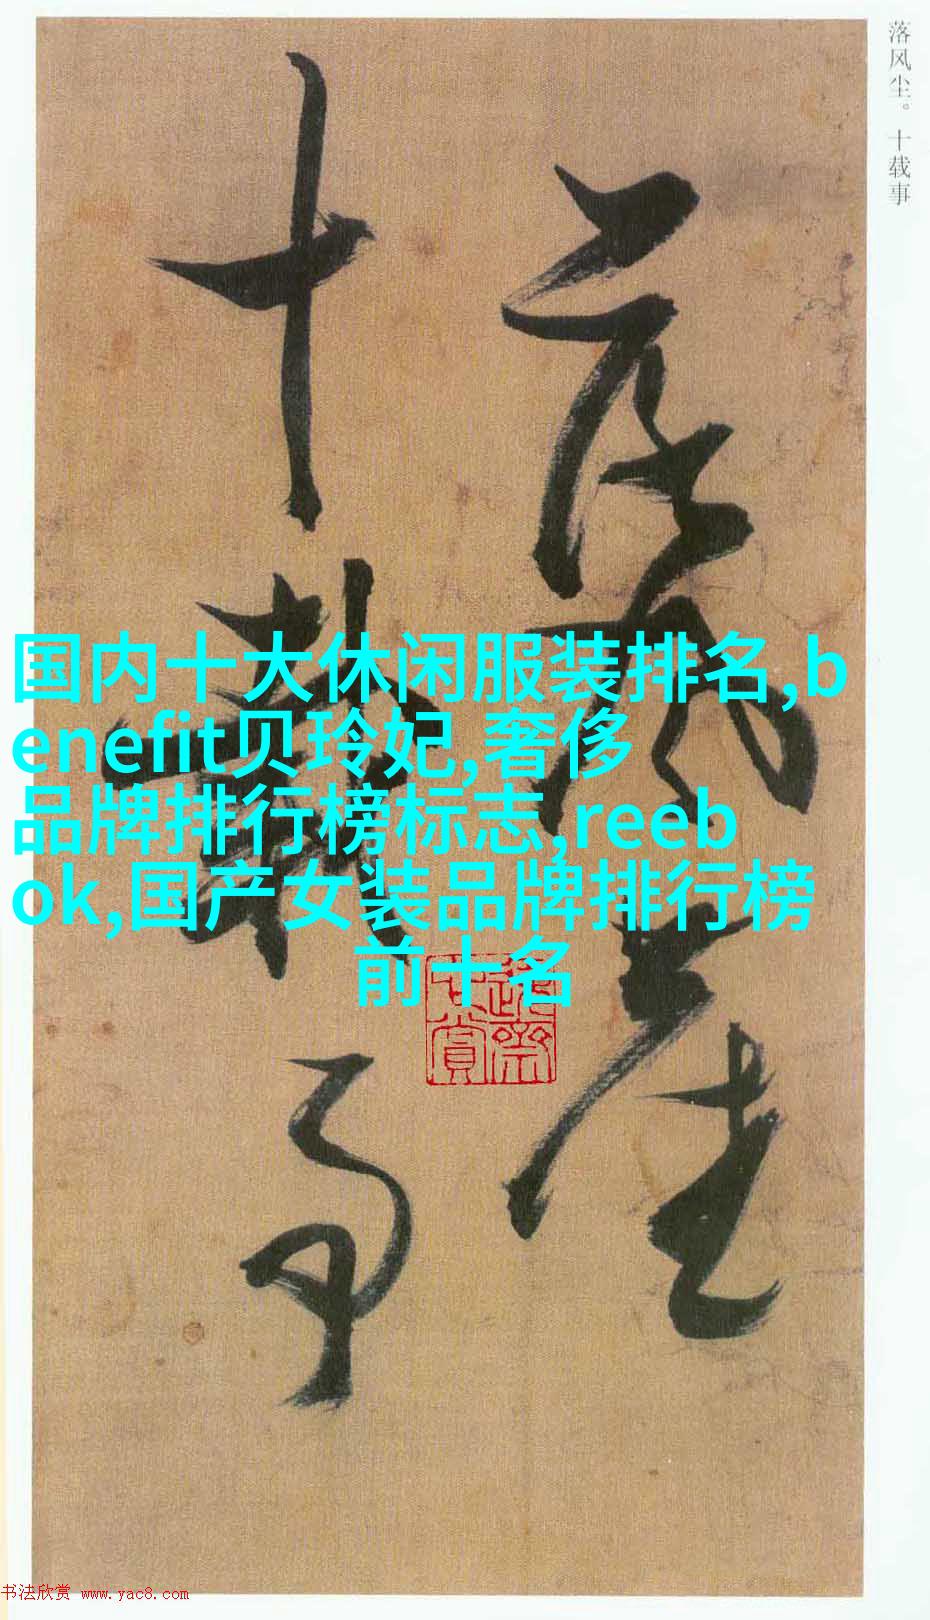 落风尘。十载事
落风尘
十载事
国内十大休闲服装排名,b
enefit贝玲妃,奢侈
品牌排行榜标志,reeb
ok,国产女装品牌排行榜
前十名
书法欣赏 www.yac8.com